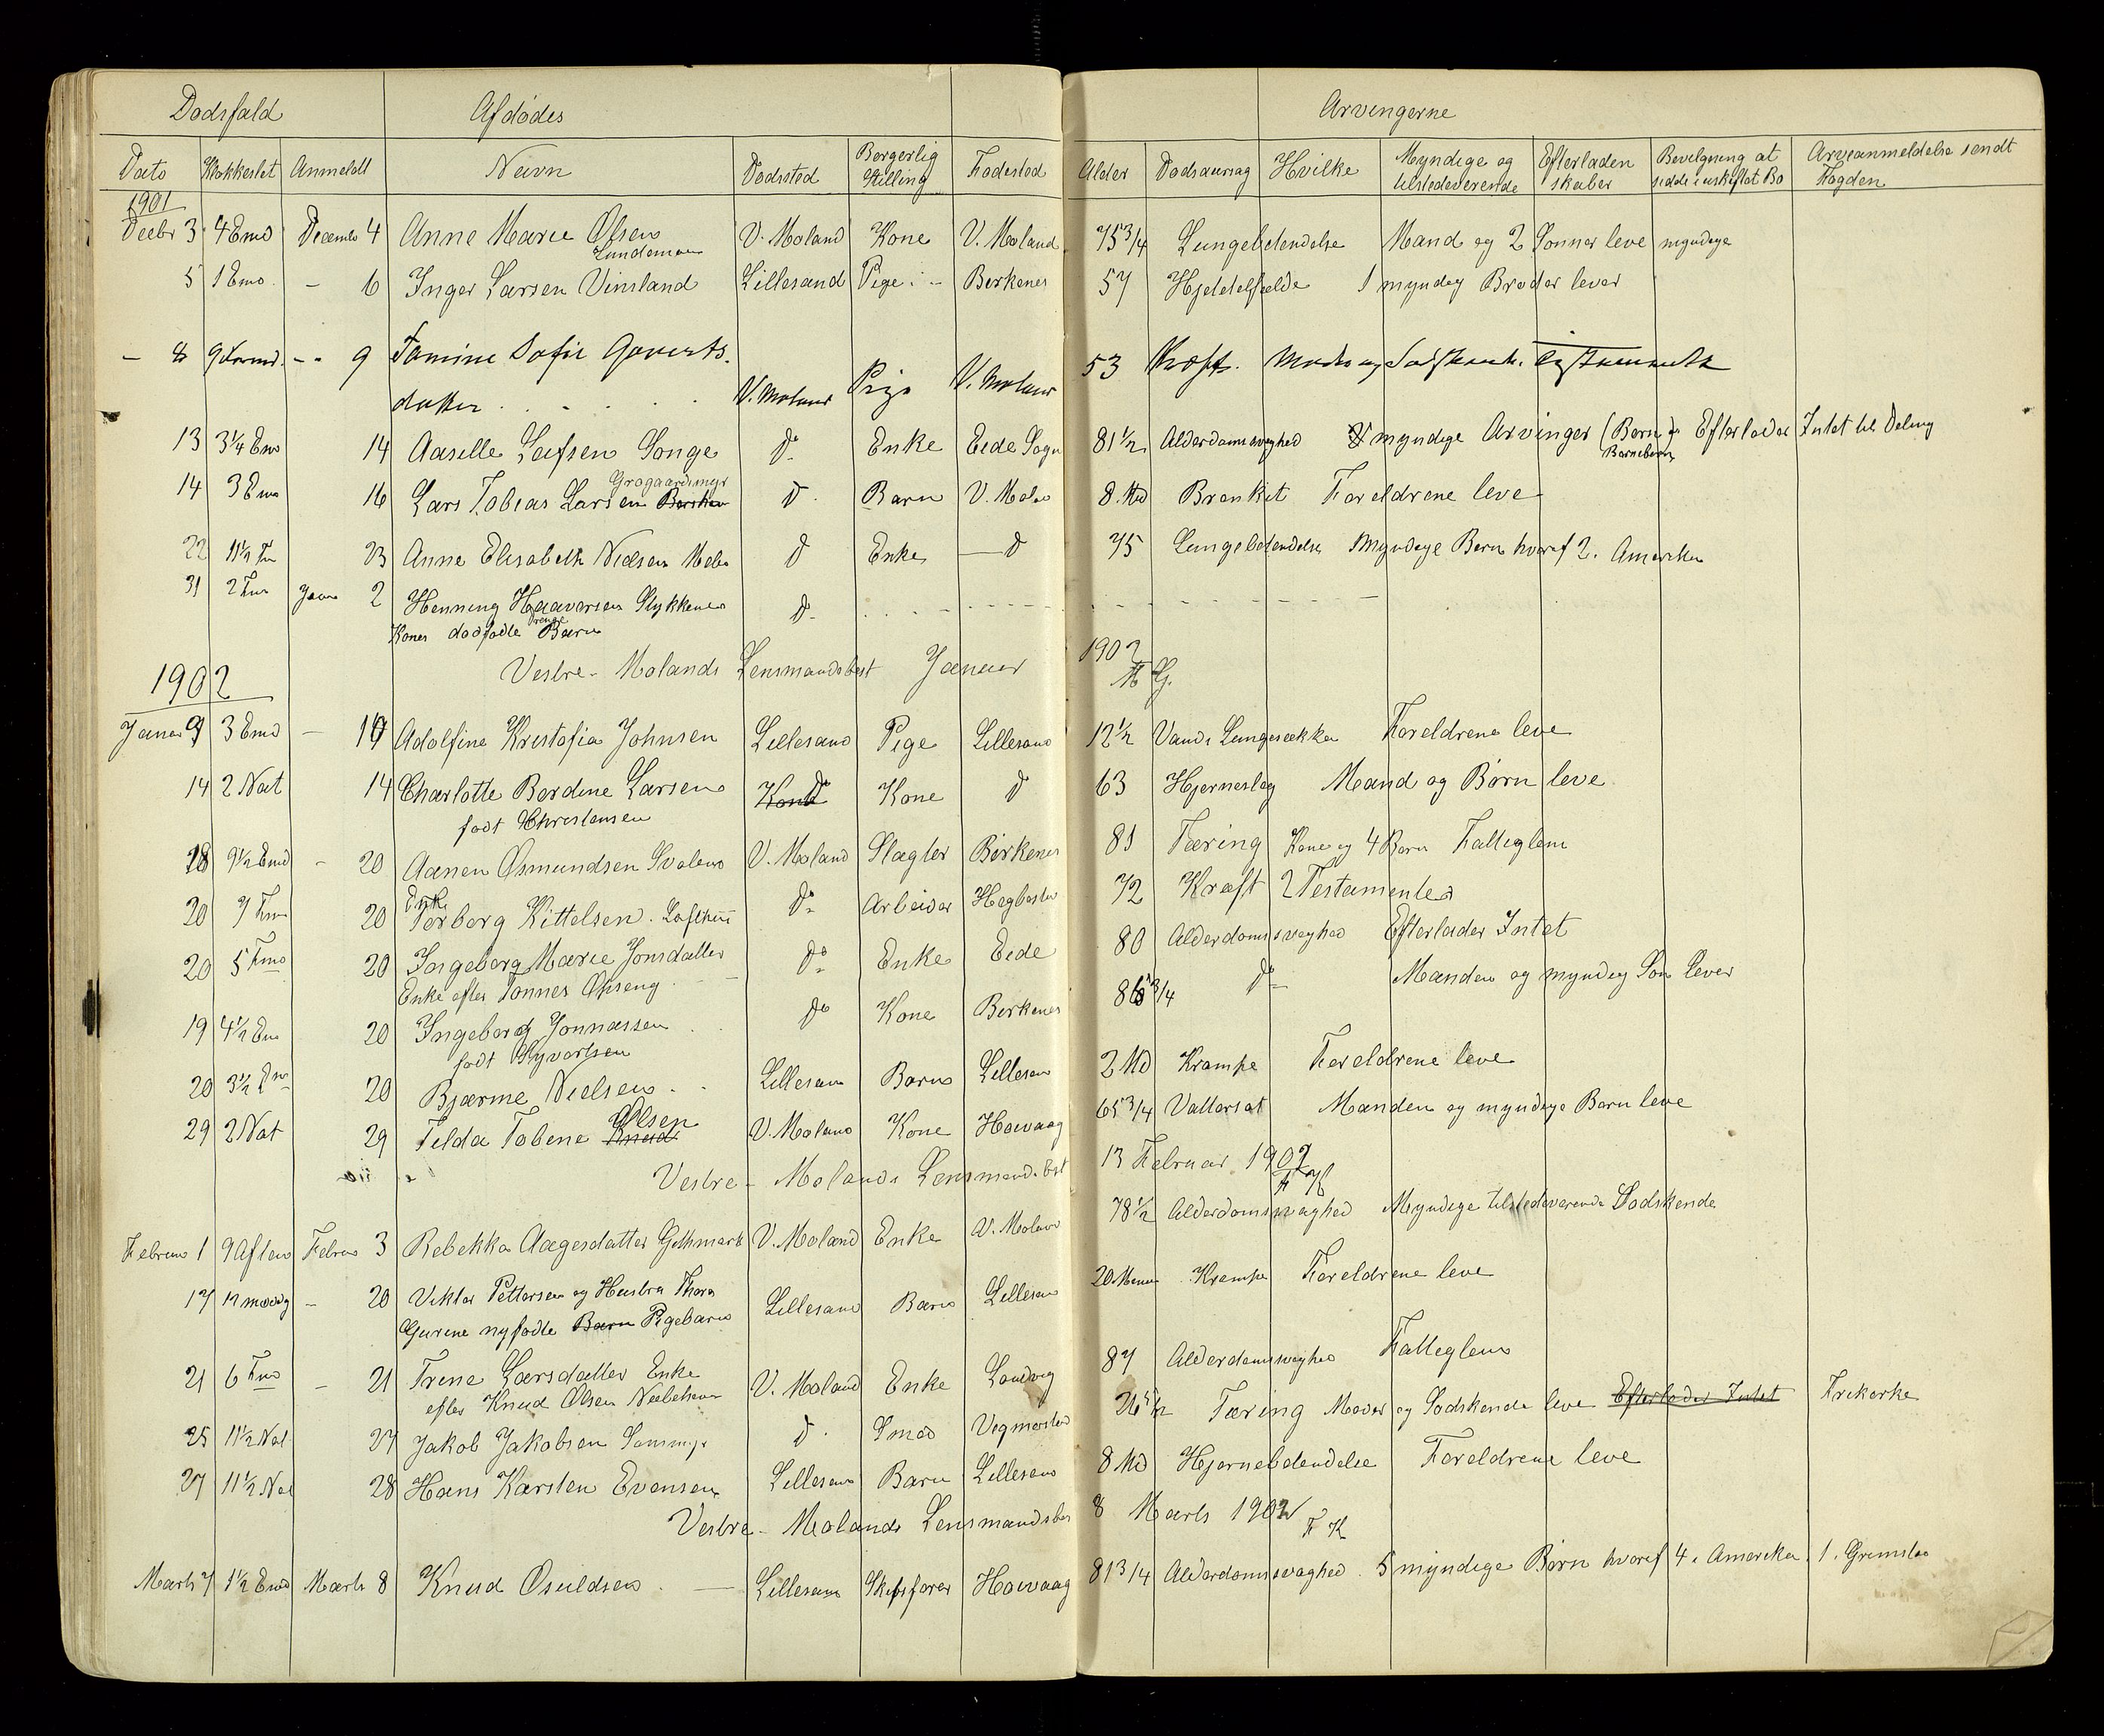 Dødsfald Afdødes Arvingerne
Dato Klokkeslet Anmeldt Navn Dødssted Borgerlig Stilling Fødested Alder Dødsaarsag Hvilke Myndige og tilstedeværende Efterladenskaber Bevilgning at sidde i uskiftet Bo Arveanmeldelse sendt Fogden
1901
Decbr 3 4 Emd December 4 Anne Marie Olsen V. Moland Kone V. Moland 75 3/4 Lungebetendelse Mand og 2 Sønner leve myndige
Lundemoen
5 1 Emd. – 6 Inger Larsen Vinsland Lillesand Pige Birkenes 57 Hjertefeil 1 myndig Broder lever
– 8 9 Formd. – 9 Tomine Sofie Goverts-
datter V. Moland Pige V. Moland 53 Kræft. Moder og Sødskende. Testamente
13 3 1/4 Em 14 Aaselle Leifsen Songe do Enke Eide Sogn 81 1/2 Alderdomsvaghed myndige Arvinger (Børn og Barnebørn Efterlader Intet til Deling
14 3 Em 16 Lars Tobias Larsen Grøgaardsmyr do Barn V. Molan 8 Md Bronkit Foreldrene leve
22 11 1/2 Fm 23 Anne Elisabeth Nielsen d Enke – d 75 Lungebetendelse Myndige Børn hvoraf 2 i Amerika
31 2 Fm Janr 2 Henning Haaversen Stykkenes do
Kones dødfødte Drenge Barn
Vestre-Molands Lensmandsbest Januar 1902
1902
Januar 9 3 Emd – 10 Adolfine Kristofia Johnsen Lillesand Pige Lillesand 12 1/2 Vand i Lungesekken Foreldrene leve
14 2 Nat 14 Charlotte Berdine Larsen do Kone d 63 Hjerneslag Mand og Børn leve
født Christensen
18 9 1/2 Emd – 20 Aanen Osmundsen V. Moland Slagter Birkenes 81 Tæring Kone og 4 Børn Fattiglem
20 7 Fm 20 Enke Torborg Kittelsen. Lofthuus do Arbeider 72 Kræft 2 Testamenter
20 5 Fmd 20 Ingeborg Marie Jonsdatter do Enke Eide 80 Alderdomsvaghed Efterlader Intet
Enke efter Tønnes
19 4 1/2 Em 20 Ingeborg Jonnassen do Kone Birkenes 3/4 do Manden og myndig Søn lever
født Syvertsen
20 3 1/2 Em 20 Bjarne Nielsen Lillesan Barn Lillesan 2 Md Krampe Foreldrene leve
29 2 Nat 29 Tilda Tobine Olsen V. Moland Kone Høivaag 65 3/4 Vattersot Manden og myndige Børn leve
Vestre-Molands Lensmandsbest 13 Februar 1902
Februar 1 9 Aften Februar 3 Rebekka Aagesdatter V. Moland Enke V. Moland 78 1/2 Alderdomsvaghed Myndige tilstedeværende Sødskende
17 12 middag – 20 Viktor Pettersen og Hustru Thora
Gurine nyfødte Barn Pigebarn Lillesand Barn Lillesan 20 Minu Krampe Foreldrene leve
21 6 Fmd – 21 Trine Larsdatter Enke
efter Knud Olsen V. Moland Enke Landvig 87 Alderdomsvaghed Fattiglem
25 11 1/2 Nat 27 Jakob Jakobsen do Smed Vegmostad 26 Tæring Moder og Sødskende leve Efterlader Intet Frikirke
27 11 1/2 Nat 28 Hans Karsten Evensen Lillesan Barn Lillesan 8 Md Hjernebetendelse Foreldrene leve
Vestre-Molands Lensmandsbes 8 Marts 1902 F K
Marts 7 1 1/2 Emd Marts 8 Knud Osuldsen Lillesan Skibsfører Høivaag 81 3/4 Alderdomsvaghed. 5 myndige Børn hvoraf 4 i Amerika 1 i Grimstad